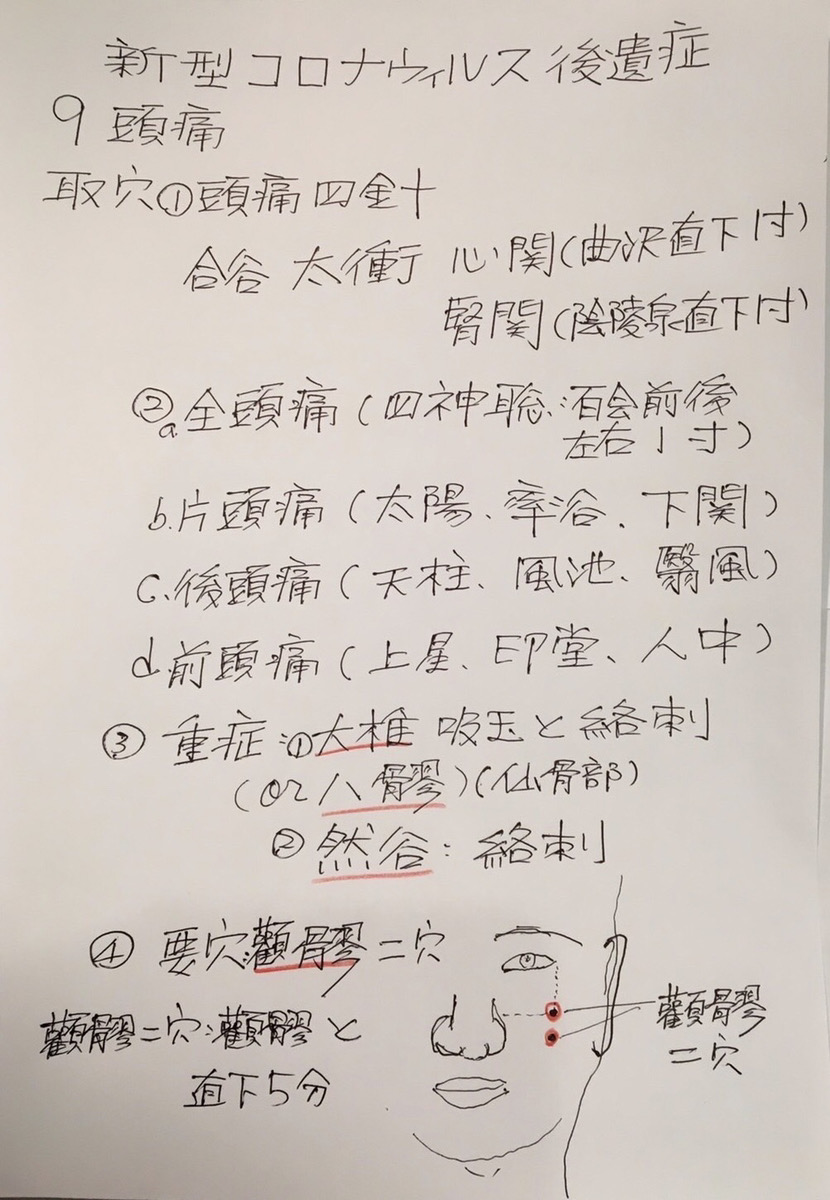 新型コロナウィルス後遺症
9 頭痛
取穴①頭痛四金十
合谷 太衝 心関(曲沢直下1寸)
腎関(陰陵泉直下1寸)
②a.全頭痛(四神聡:百会前後
左右1寸)
b.片頭痛(太陽、率谷、下関)
c.後頭痛(天柱、風池、翳風)
d.前頭痛(上星、印堂、人中)
③ 重症:①大椎 吸玉と絡刺
(or 八髎)(仙骨部)
② 然谷:絡刺
④ 要穴:顴髎二穴
顴髎二穴:顴髎と
直下5分
顴髎
二穴